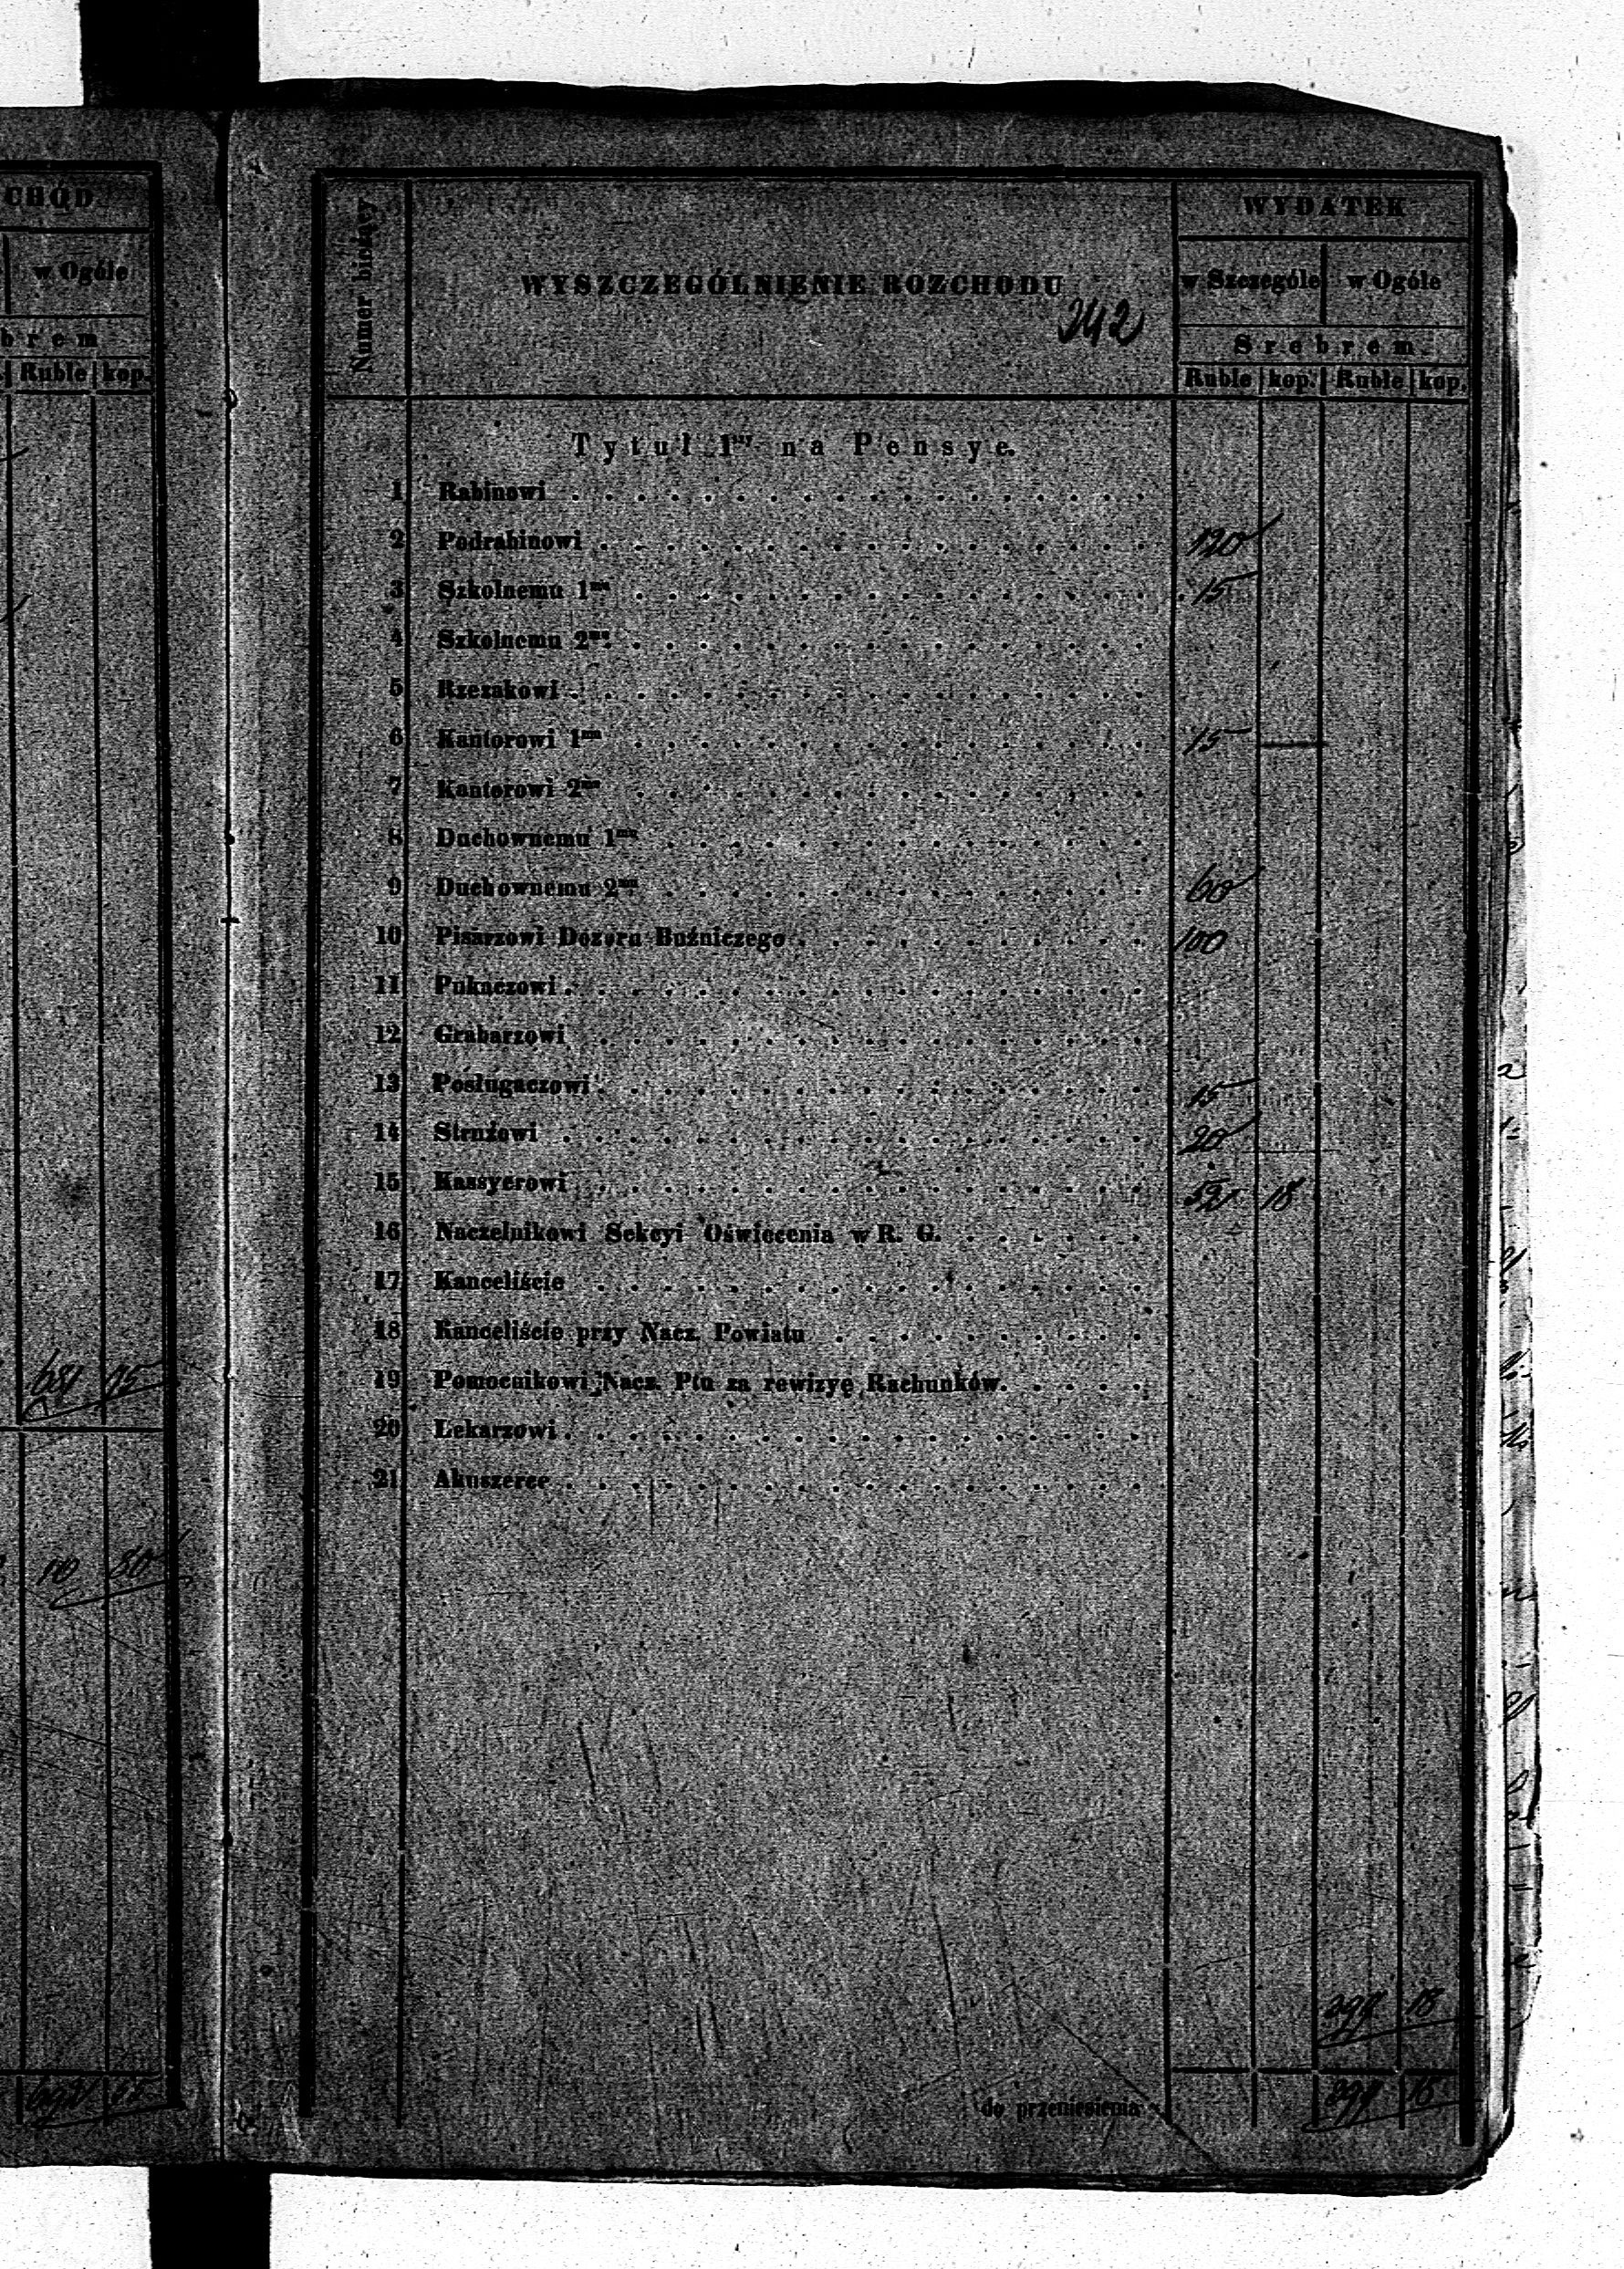 CHÓD
w Ogóle
brem
Ruble kop.
681 75
10 80
692 55
Numer bieżący
WYSZCZEGÓLNIENIE ROZCHODU
342
WYDATEK
w Szczególe w Ogóle
Srebrem.
Ruble kop. Ruble kop.
Tytuł 1szy na Pensye.
1 Rabinowi
2 Podrabinowi 120
3 Szkolnemu 1mu 15
4 Szkolnemu 2mu
5 Rzezakowi
6 Kantorowi 1mu 15 —
7 Kantorowi 2mu
8 Duchownemu 1mu
9 Duchownemu 2mu 60
10 Pisarzowi Dozoru Bużniczego 100
11 Pukaczowi
12 Grabarzowi
13 Posługaczowi 15
14 Stružowi 20
15 Kassyerowi 52 18
16 Naczelnikowi Sekcyi Oświecenia w R. G.
17 Kanceliście
18 Kanceliście przy Nacz. Powiatu
19 Pomocnikowi Nacz. Ptu za rewizyę Rachunków.
20 Lekarzowi
21 Akuszerce
397 18
do przeniesienia 397 18